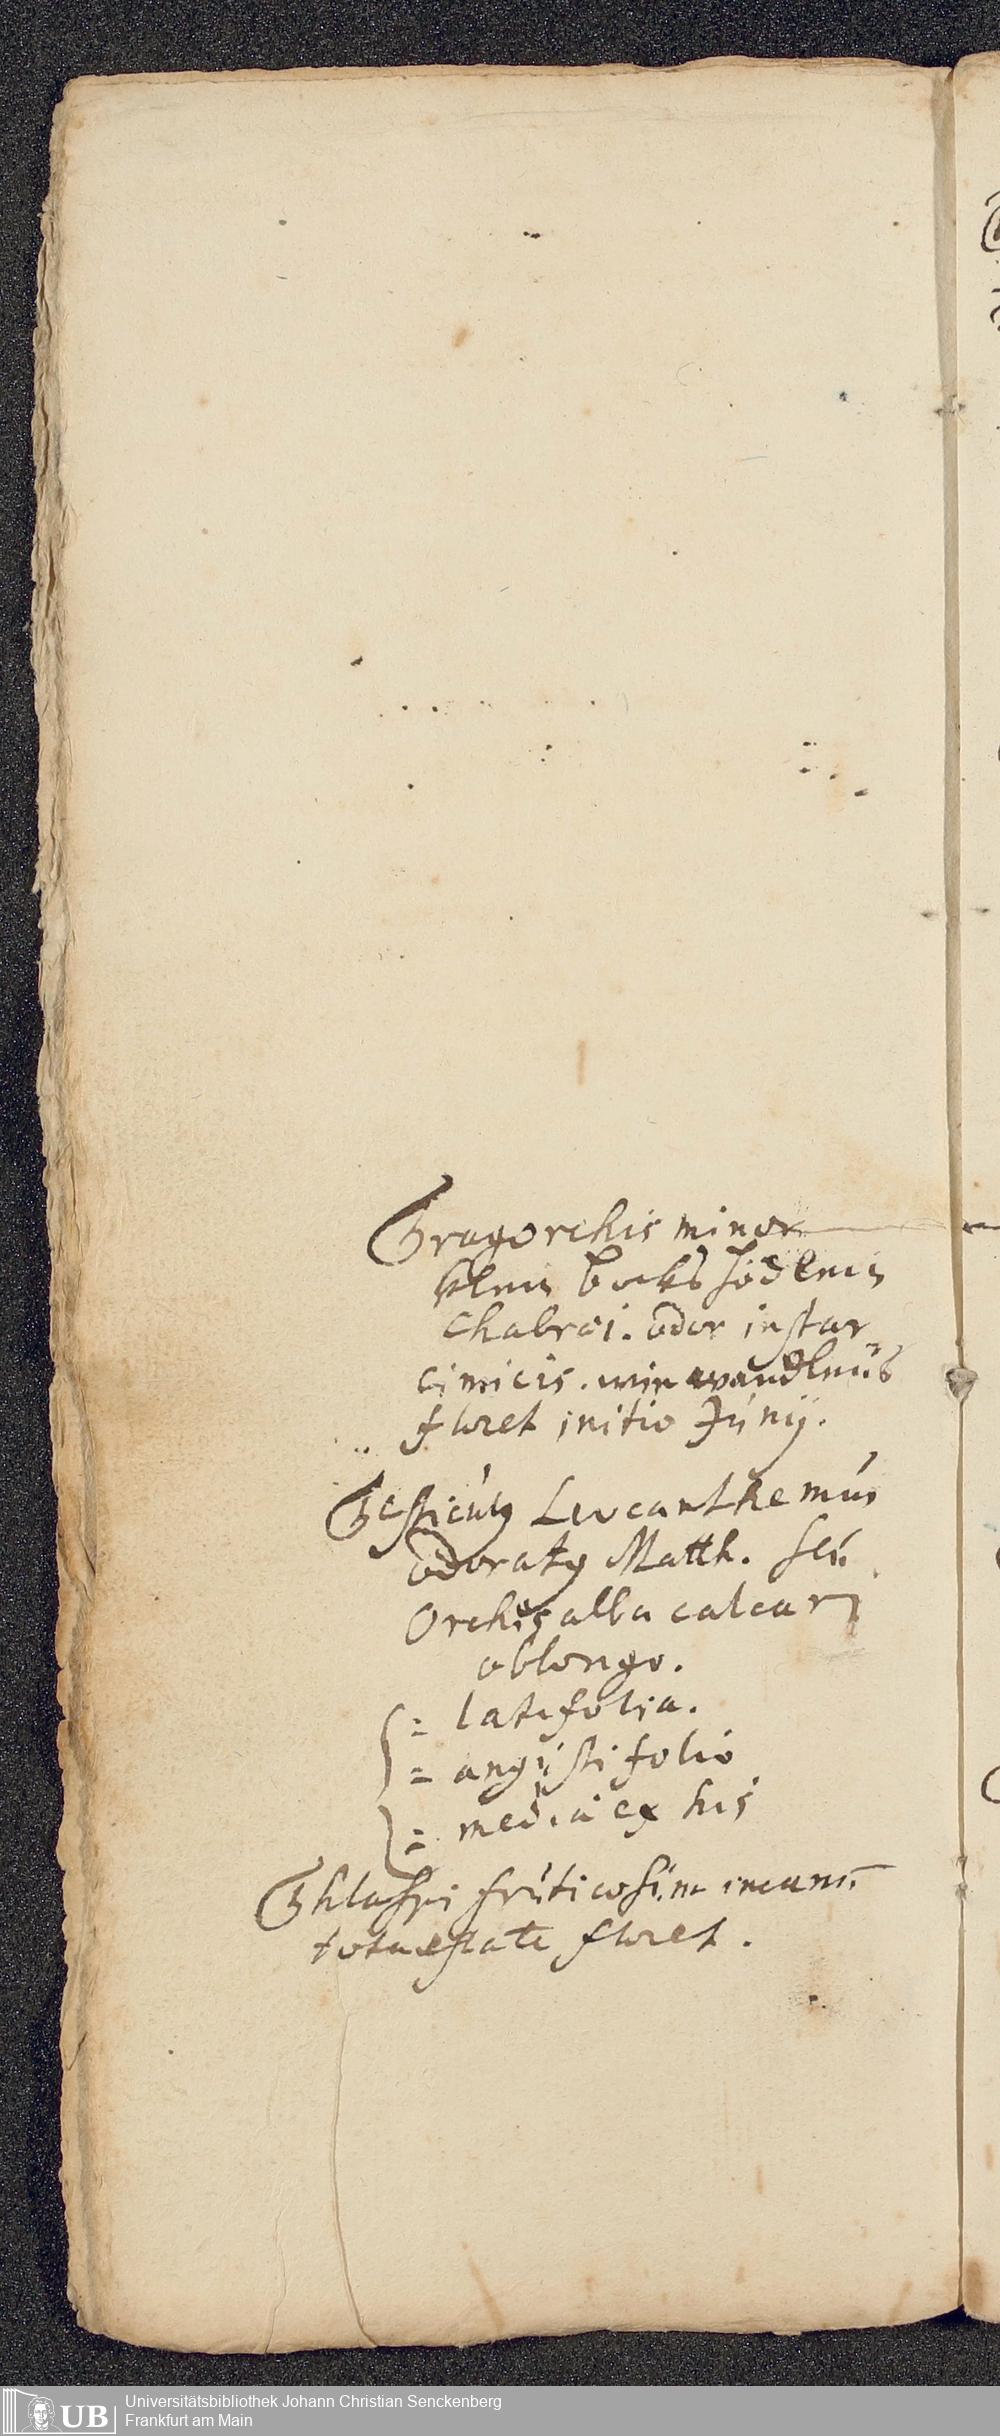 Tragorchis minor
klein bocks hödlein
Chabrei. odor instar
cimicis. wie wandleüs
floret initio Júnij.
Testiculus Leucanthemús
odoratus Matth. seú
Orchis alba calcari
oblongo.
= latifolia.
= angústifolio
= media ex his
Thlaspi frúticosúm incanú
tota æstate floret.
UB
Universitätsbibliothek Johann Christian Senckenberg
Frankfurt am Main